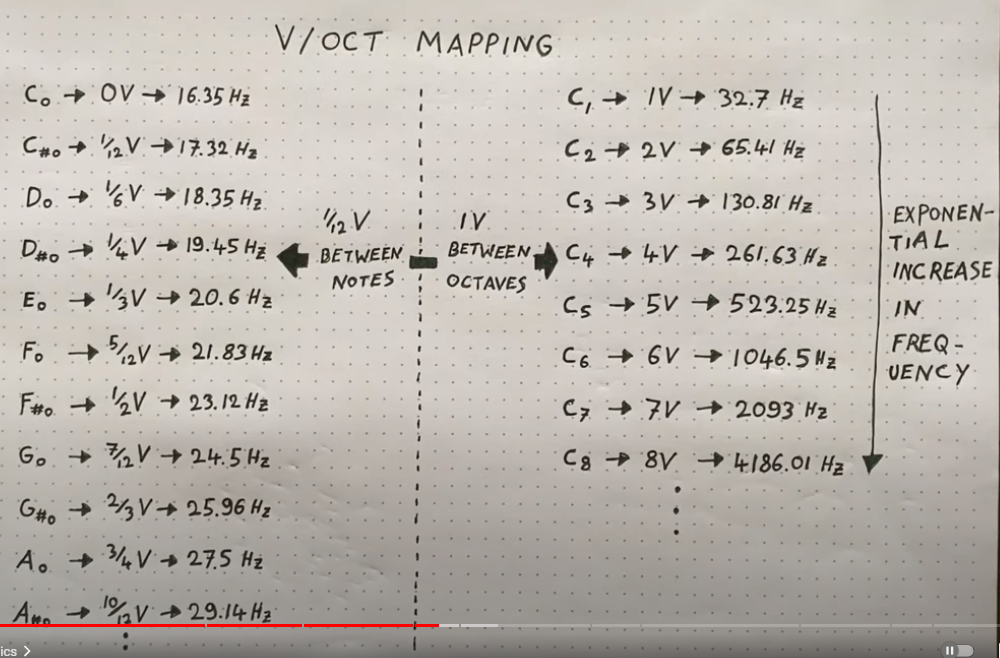 V/OCT MAPPING
C0 → 0V → 16.35 Hz
C#0 → 1/12 V → 17.32 Hz
D0 → 1/6 V → 18.35 Hz
D#0 → 1/4 V → 19.45 Hz
E0 → 1/3 V → 20.6 Hz
F0 → 5/12 V → 21.83 Hz
F#0 → 1/2 V → 23.12 Hz
G0 → 7/12 V → 24.5 Hz
G#0 → 2/3 V → 25.96 Hz
A0 → 3/4 V → 27.5 Hz
A#0 → 10/12 V → 29.14 Hz
1/12 V
BETWEEN
NOTES
1V
BETWEEN
OCTAVES
C1 → 1V → 32.7 Hz
C2 → 2V → 65.41 Hz
C3 → 3V → 130.81 Hz
C4 → 4V → 261.63 Hz
C5 → 5V → 523.25 Hz
C6 → 6V → 1046.5 Hz
C7 → 7V → 2093 Hz
C8 → 8V → 4186.01 Hz
EXPONEN-
TIAL
INCREASE
IN
FREQ-
UENCY
ics >